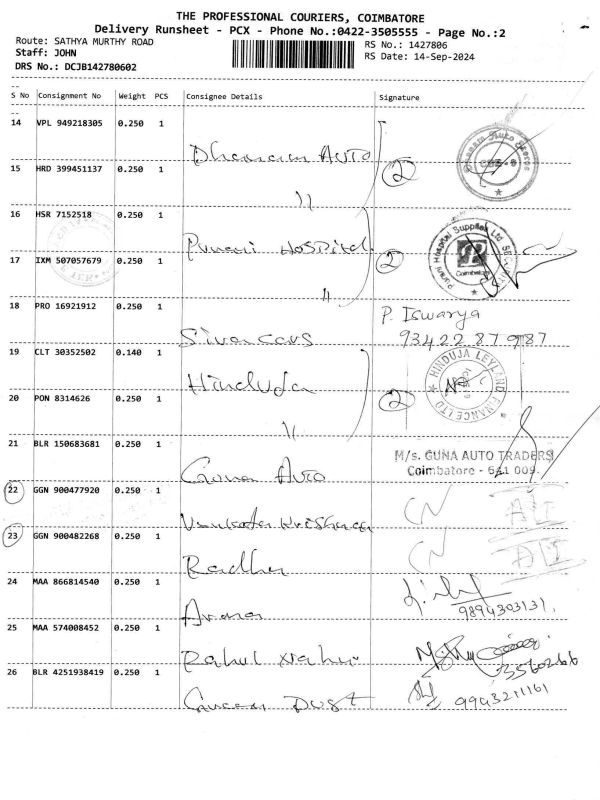 THE PROFESSIONAL COURIERS, COIMBATORE
Delivery Runsheet - PCX - Phone No.:0422-3505555 - Page No.:2
Route: SATHYA MURTHY ROAD
RS No.: 1427806
Staff: JOHN
RS Date: 14-Sep-2024
DRS No.: DCJB142780602
--
S No Consignment No Weight PCS Consignee Details Signature
--
14 VPL 949218305 0.250 1
AUTO
15 HRD 399451137 0.250 1
2
"
16 HSR 7152518 0.250 1
Purani Hospital
Purani Hospital Supplies Ltd
Coimbatore
17 IXM 507057679 0.250 1
2
"
18 PRO 16921912 0.250 1
P. Iswarya
Sivan cars
93422 87987
19 CLT 30352502 0.140 1
Hinduja
HINDUJA LEYLAND FINANCE LTD
20 PON 8314626 0.250 1
2
"
21 BLR 150683681 0.250 1
M/s. GUNA AUTO TRADERS
Coimbatore - 641 009.
Guna Auto
22 GGN 900477920 0.250 1
CN
23 GGN 900482268 0.250 1
CN
Radha
24 MAA 866814540 0.250 1
9894303131
25 MAA 574008452 0.250 1
Rahul
26 BLR 4251938419 0.250 1
9943211161